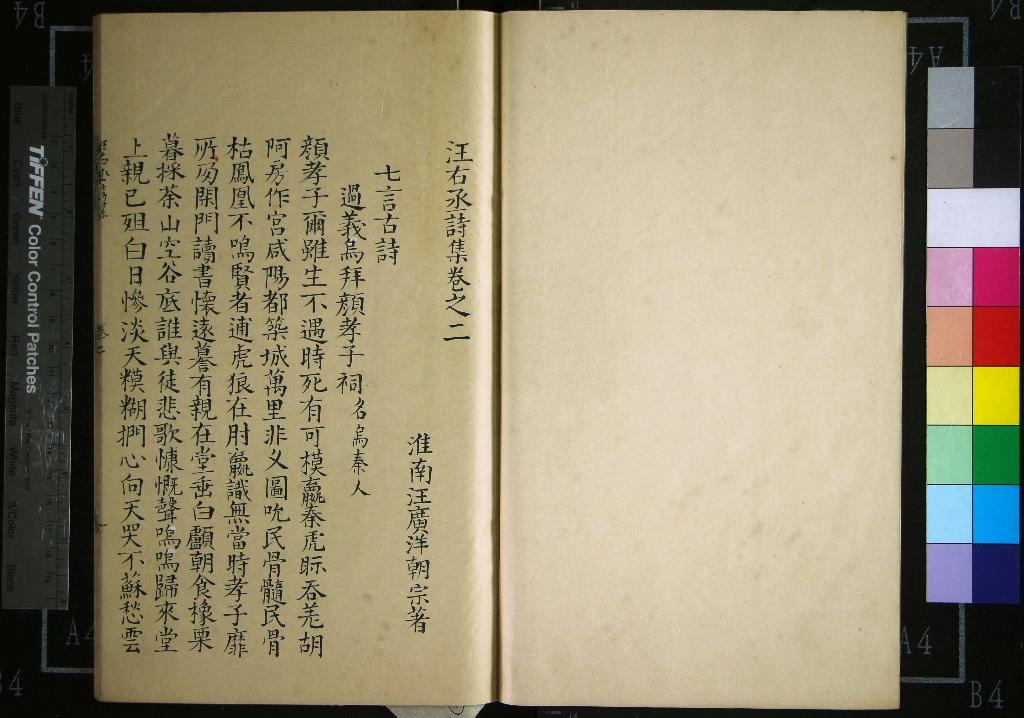 汪右丞詩集卷之二
淮南汪廣洋朝宗著
七言古詩
過義烏拜顏孝子祠名烏秦人
顏孝子爾雖生不遇時死有可模嬴秦虎眎吞羌胡
阿房作宮咸陽都築城萬里非乂圖吮民骨髓民骨
枯鳳凰不鳴賢者逋虎狼在肘嬴識無當時孝子靡
所為閑門讀書懷遠謩有親在堂垂白顱朝食橡栗
暮採荼山空谷底誰與徒悲歌慷慨聲嗚嗚歸來堂
上親已殂白日慘淡天糢糊捫心向天哭不蘇愁雲
TIFFEN Color Control Patches
Blue
Cyan
Green
Yellow
Red
Magenta
White
3/Color
Black
B4
A4
A4
B4
A4
A4
B4
B4